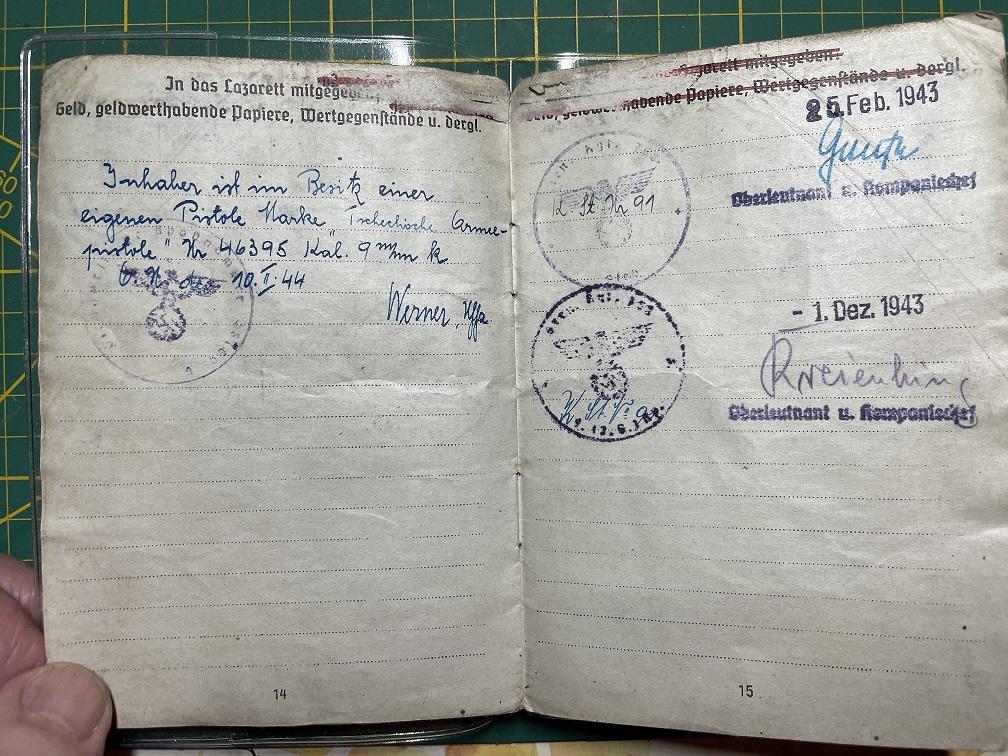 In das Lazarett mitgegeben:
Geld, geldwerthabende Papiere, Wertgegenstände u. dergl.
Inhaber ist im Besitz einer
eigenen Pistole Marke „Tschechische Armee-
pistole" Nr 46395 Kal. 9 mm k
O.U. den 10.II.44
Werner, Uffz
14
Lazarett mitgegeben:
Geld, geldwerthabende Papiere, Wertgegenstände u. dergl.
25. Feb. 1943
K St. Nr 91
Oberleutnant u. Kompaniechef
- 1. Dez. 1943
Oberleutnant u. Kompaniechef
15